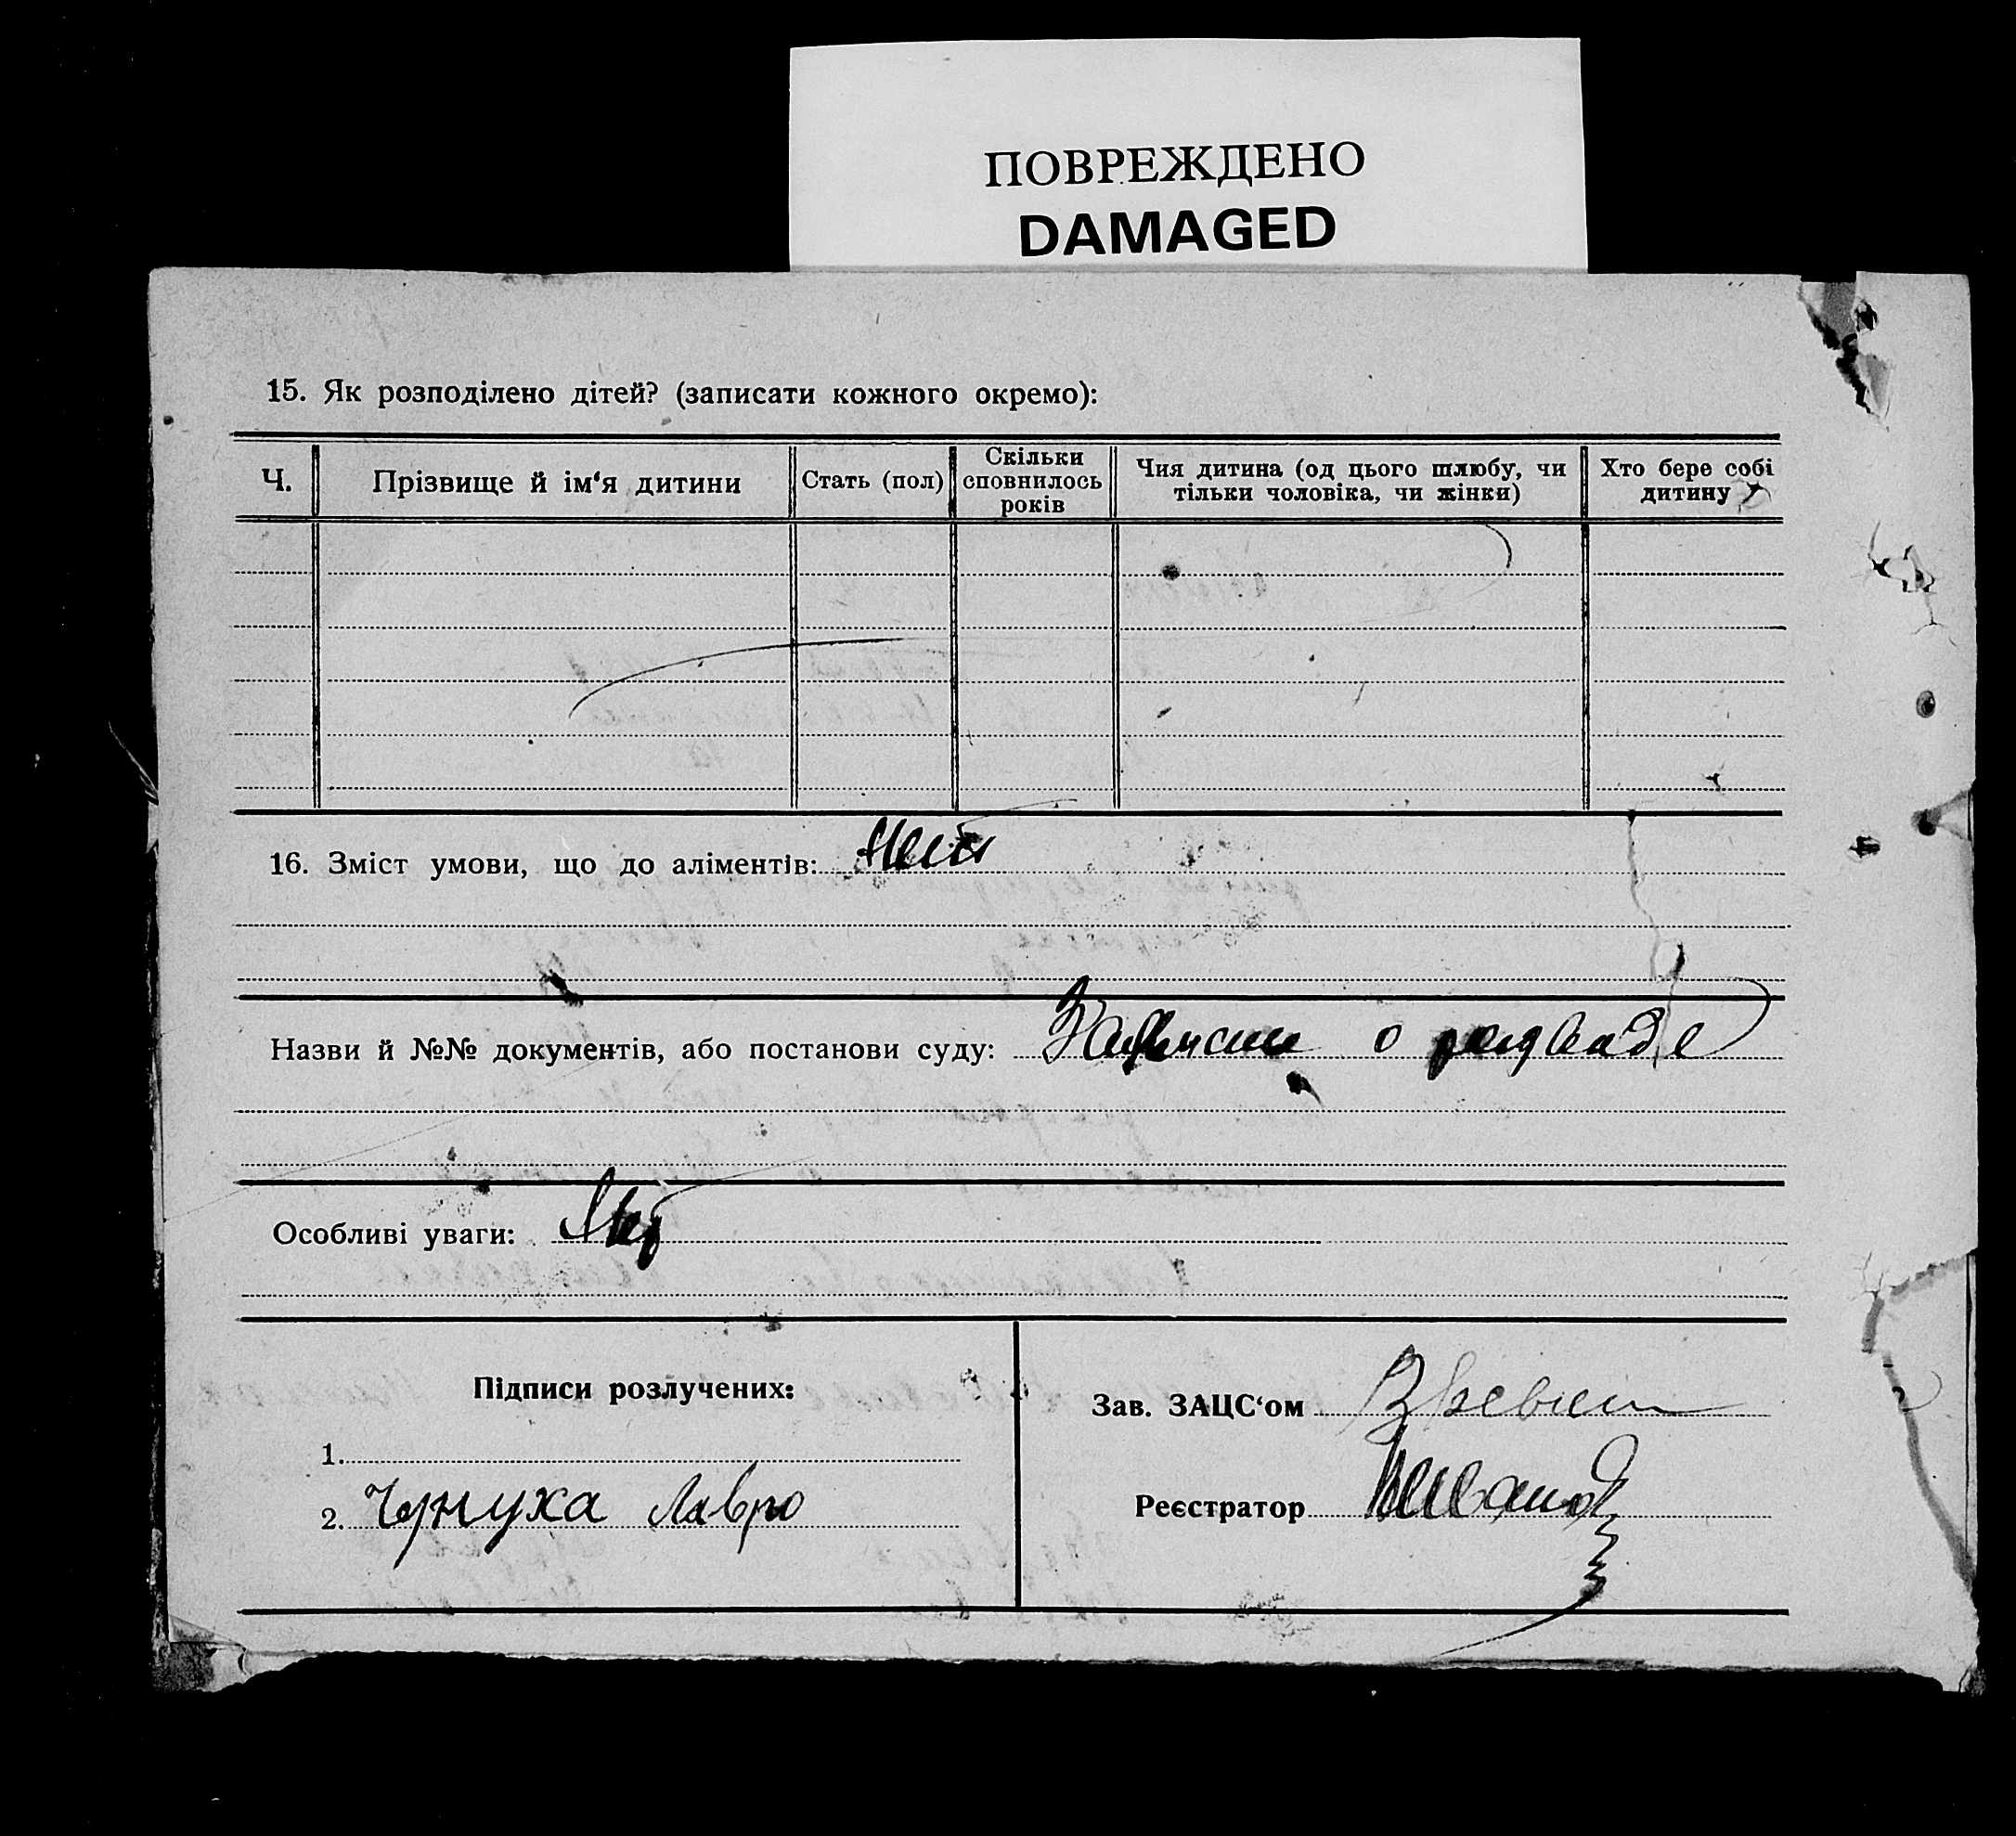 ПОВРЕЖДЕНО
DAMAGED
15. Як розподілено дітей? (записати кожного окремо):
Ч.
Прізвище й ім‘я дитини
Стать (пол)
Скільки сповнилось років
Чия дитина (од цього шлюбу, чи тільки чоловіка, чи жінки)
Хто бере собі дитину
16. Зміст умови, що до аліментів: Нет
Назви й №№ документів, або постанови суду: о разводе
Особливі уваги: Нет
Підписи розлучених:
1.
2. Чернуха Лавро
Зав. ЗАЦС‘ом
Реєстратор